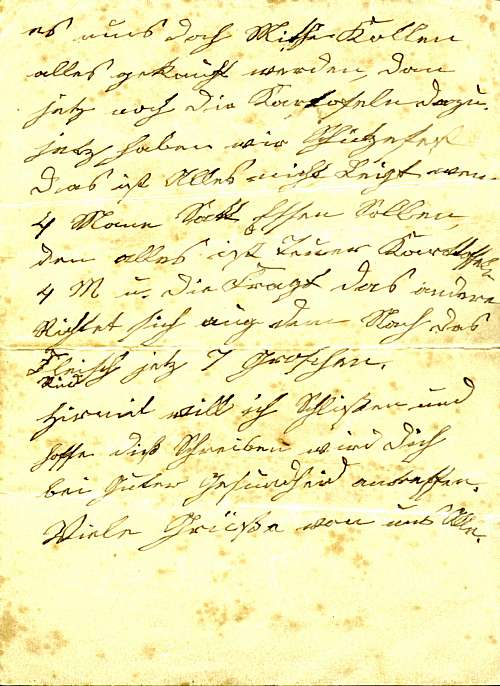 es muß doch Kollen
alles gekauft werden, dan
jetz noch die Kartofeln dazu.
jetz haben wir Schützefest
das ist Alles nicht Leigt wen
4 Mann Satt Essen Sollen,
den alles ist Teuer Kartoffeln
4 M u. die Fragt das andere
Richtet sich aug dem Nach das
Rind Fleisch jetz 7 Groschen.
Hirmit will ich Schlißen und
hoffe diß Schreiben wird dich
bei Guter Gesundheid antreffen.
Viele Grüße von uns Alle.